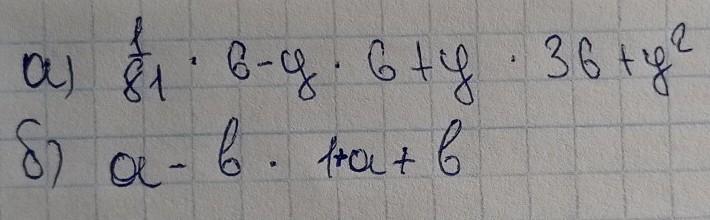 а) 1/81 · 6-y · 6+y · 36+y²
б) a - b · 1+a + b